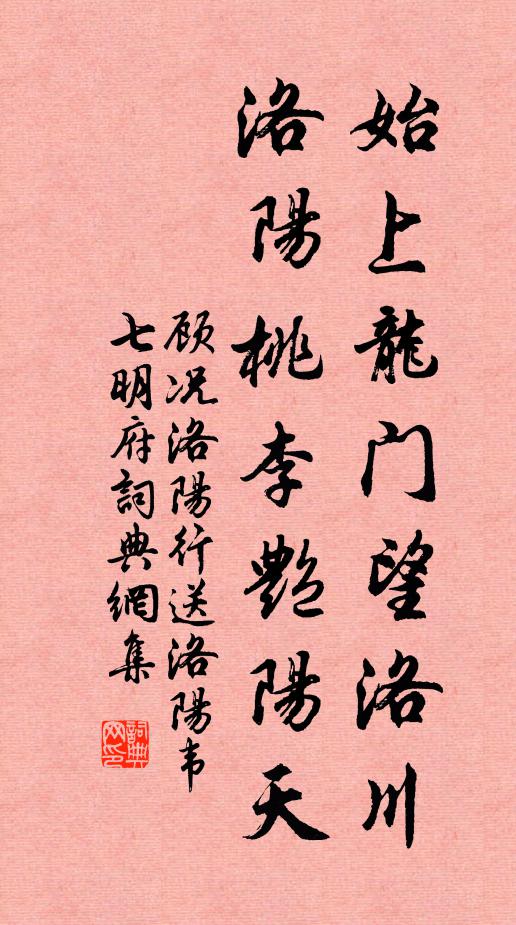 始上龍门望洛川
洛陽桃李艶陽天
顾况洛陽行送洛陽韦
七明府詞典網集
詞典
网印